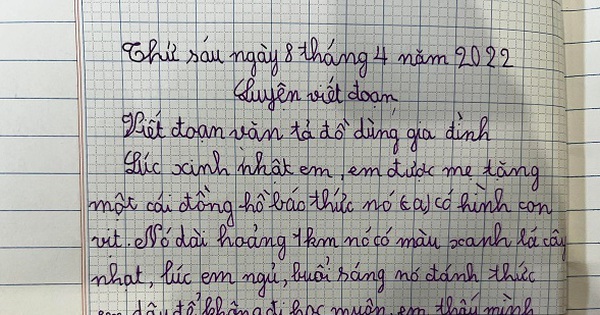 Thứ sáu ngày 8 tháng 4 năm 2022
Luyện viết đoạn
Viết đoạn văn tả đồ dùng gia đình
Lúc xinh nhật em, em được mẹ tăng
một cái đồng hồ báo thức nó (a) có hình con
vịt. Nó dài hoảng 1km nó có màu xanh lá cây
nhạt, lúc em ngủ, buổi sáng nó đánh thức
em dậy để không đi học muộn. em thấy mình